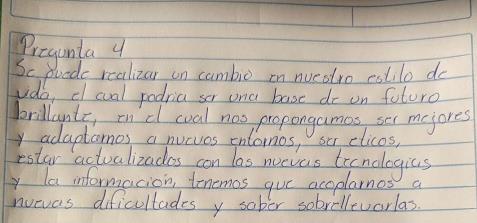 Pregunta 4
Se puede realizar un cambio en nuestro estilo de
vida, el cual podria ser una base de un futuro
brillante, en el cual nos propongamos ser mejores
y adaptarnos a nuevos entornos, ser eticos,
estar actualizados con las nuevas tecnologias
y la informacion, tenemos que acoplarnos a
nuevas dificultades y saber sobrellevarlas.